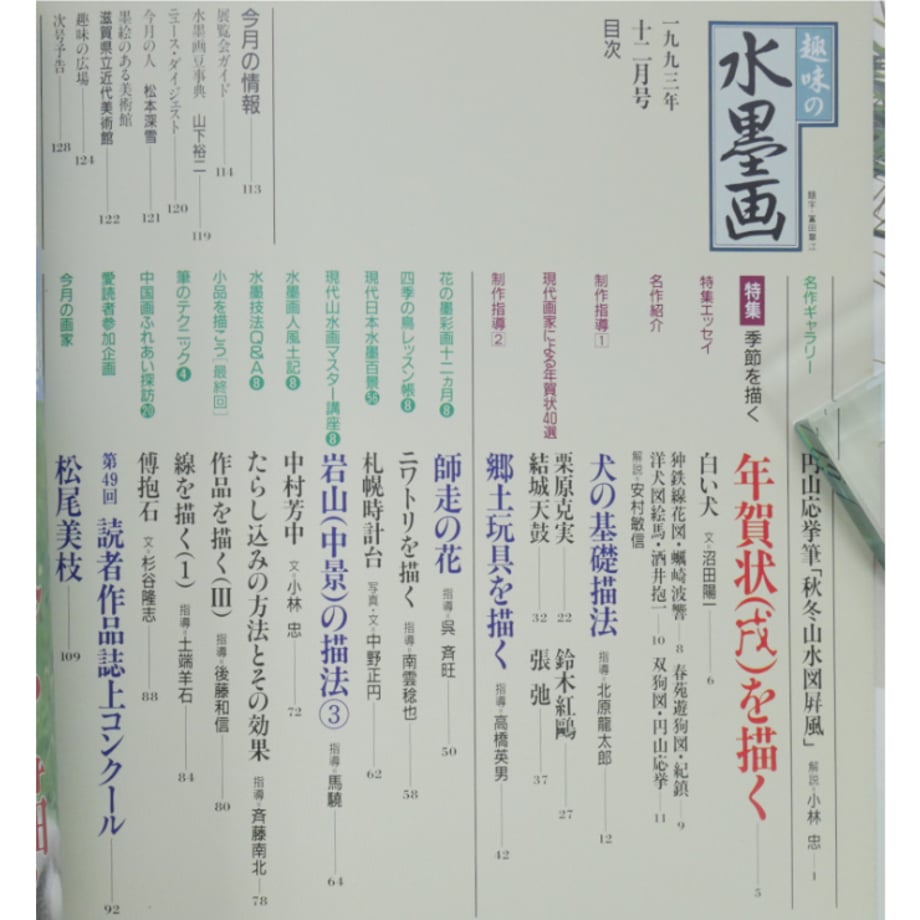 趣味の
水墨画
題字・富田華江
一九九三年
十二月号
目次
名作ギャラリー 円山応挙筆「秋冬山水図屛風」 解説=小林 忠 1
特集 季節を描く 年賀状(戌)を描く 5
特集エッセイ 白い犬 文=沼田陽一 6
名作紹介 狆鉄線花図・蠣崎波響 8 春苑遊狗図・紀鎮 9
洋犬図絵馬・酒井抱一 10 双狗図・円山応挙 11
解説=安村敏信
制作指導1 犬の基礎描法 指導=北原龍太郎 12
現代画家による年賀状40選 栗原克実 22 鈴木紅鷗 27
結城天鼓 32 張 弛 37
制作指導2 郷土玩具を描く 指導=高橋英男 42
花の墨彩画十二ヵ月8 師走の花 指導=呉 斉旺 50
四季の鳥レッスン帳8 ニワトリを描く 指導=南雲稔也 58
現代日本水墨百景56 札幌時計台 写真・文=中野正円 62
現代山水画マスター講座8 岩山(中景)の描法③ 指導=馬驍 64
水墨画人風土記8 中村芳中 文=小林 忠 72
水墨技法Q&A8 たらし込みの方法とその効果 指導=斉藤南北 78
小品を描こう[最終回] 作品を描く(III) 指導=後藤和信 80
筆のテクニック4 線を描く(1) 指導=土端羊石 84
中国画ふれあい探訪20 傅抱石 文=杉谷隆志 88
愛読者参加企画 第49回 読者作品誌上コンクール 92
今月の画家 松尾美枝 109
今月の情報 113
展覧会ガイド 114
水墨画豆事典 山下裕二 119
ニュース・ダイジェスト 120
今月の人 松本深雪 121
墨絵のある美術館
滋賀県立近代美術館 122
趣味の広場 124
次号予告 128